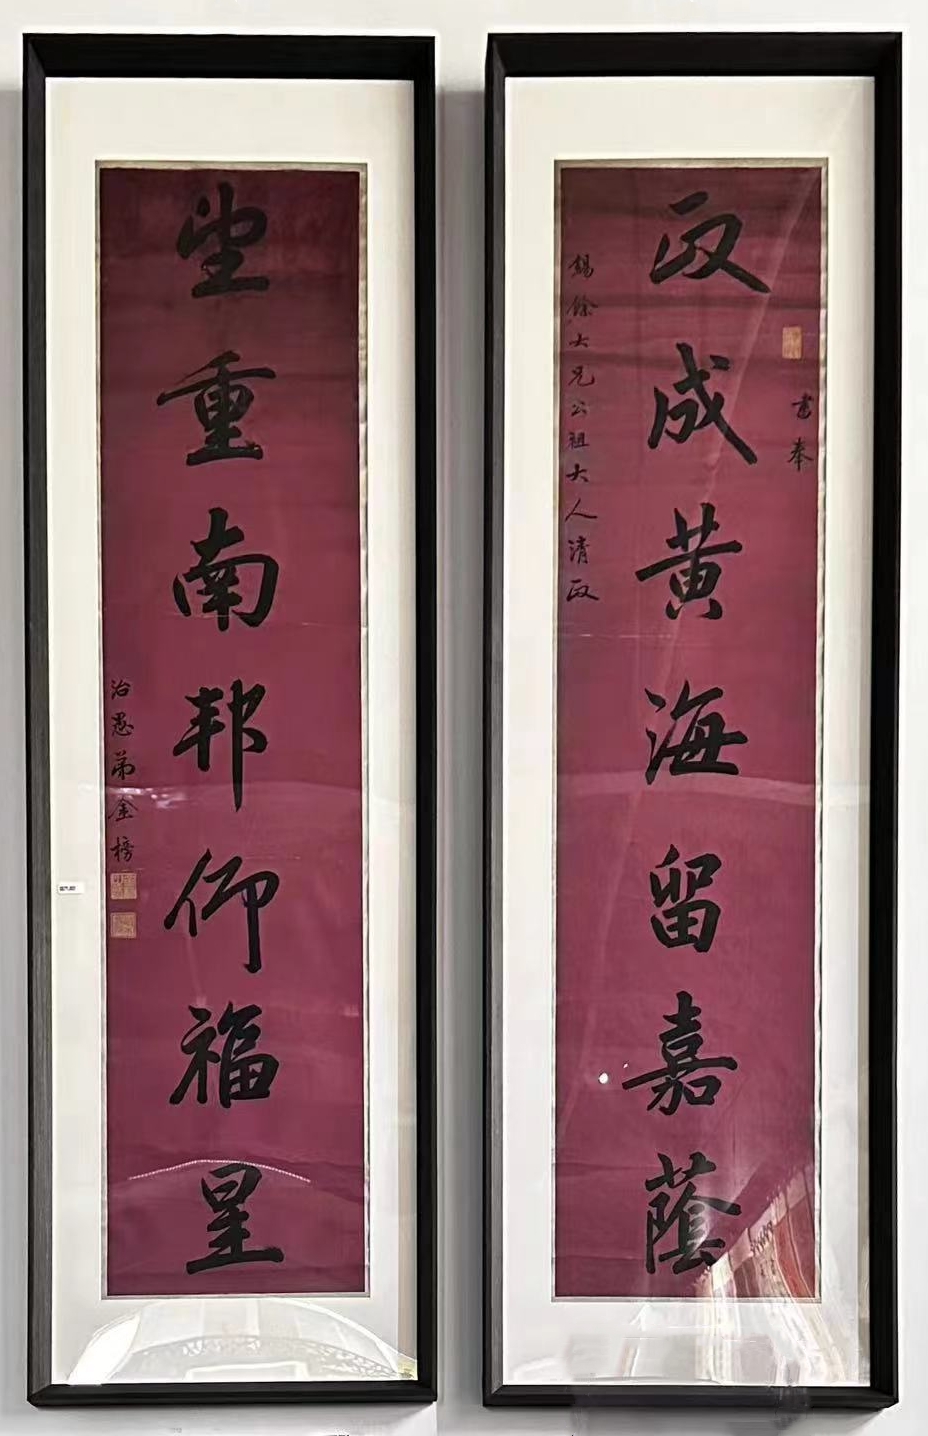 書奉
政成黄海留嘉蔭
錫餘大兄公祖大人清政
望重南邦仰福星
治愚弟金榜